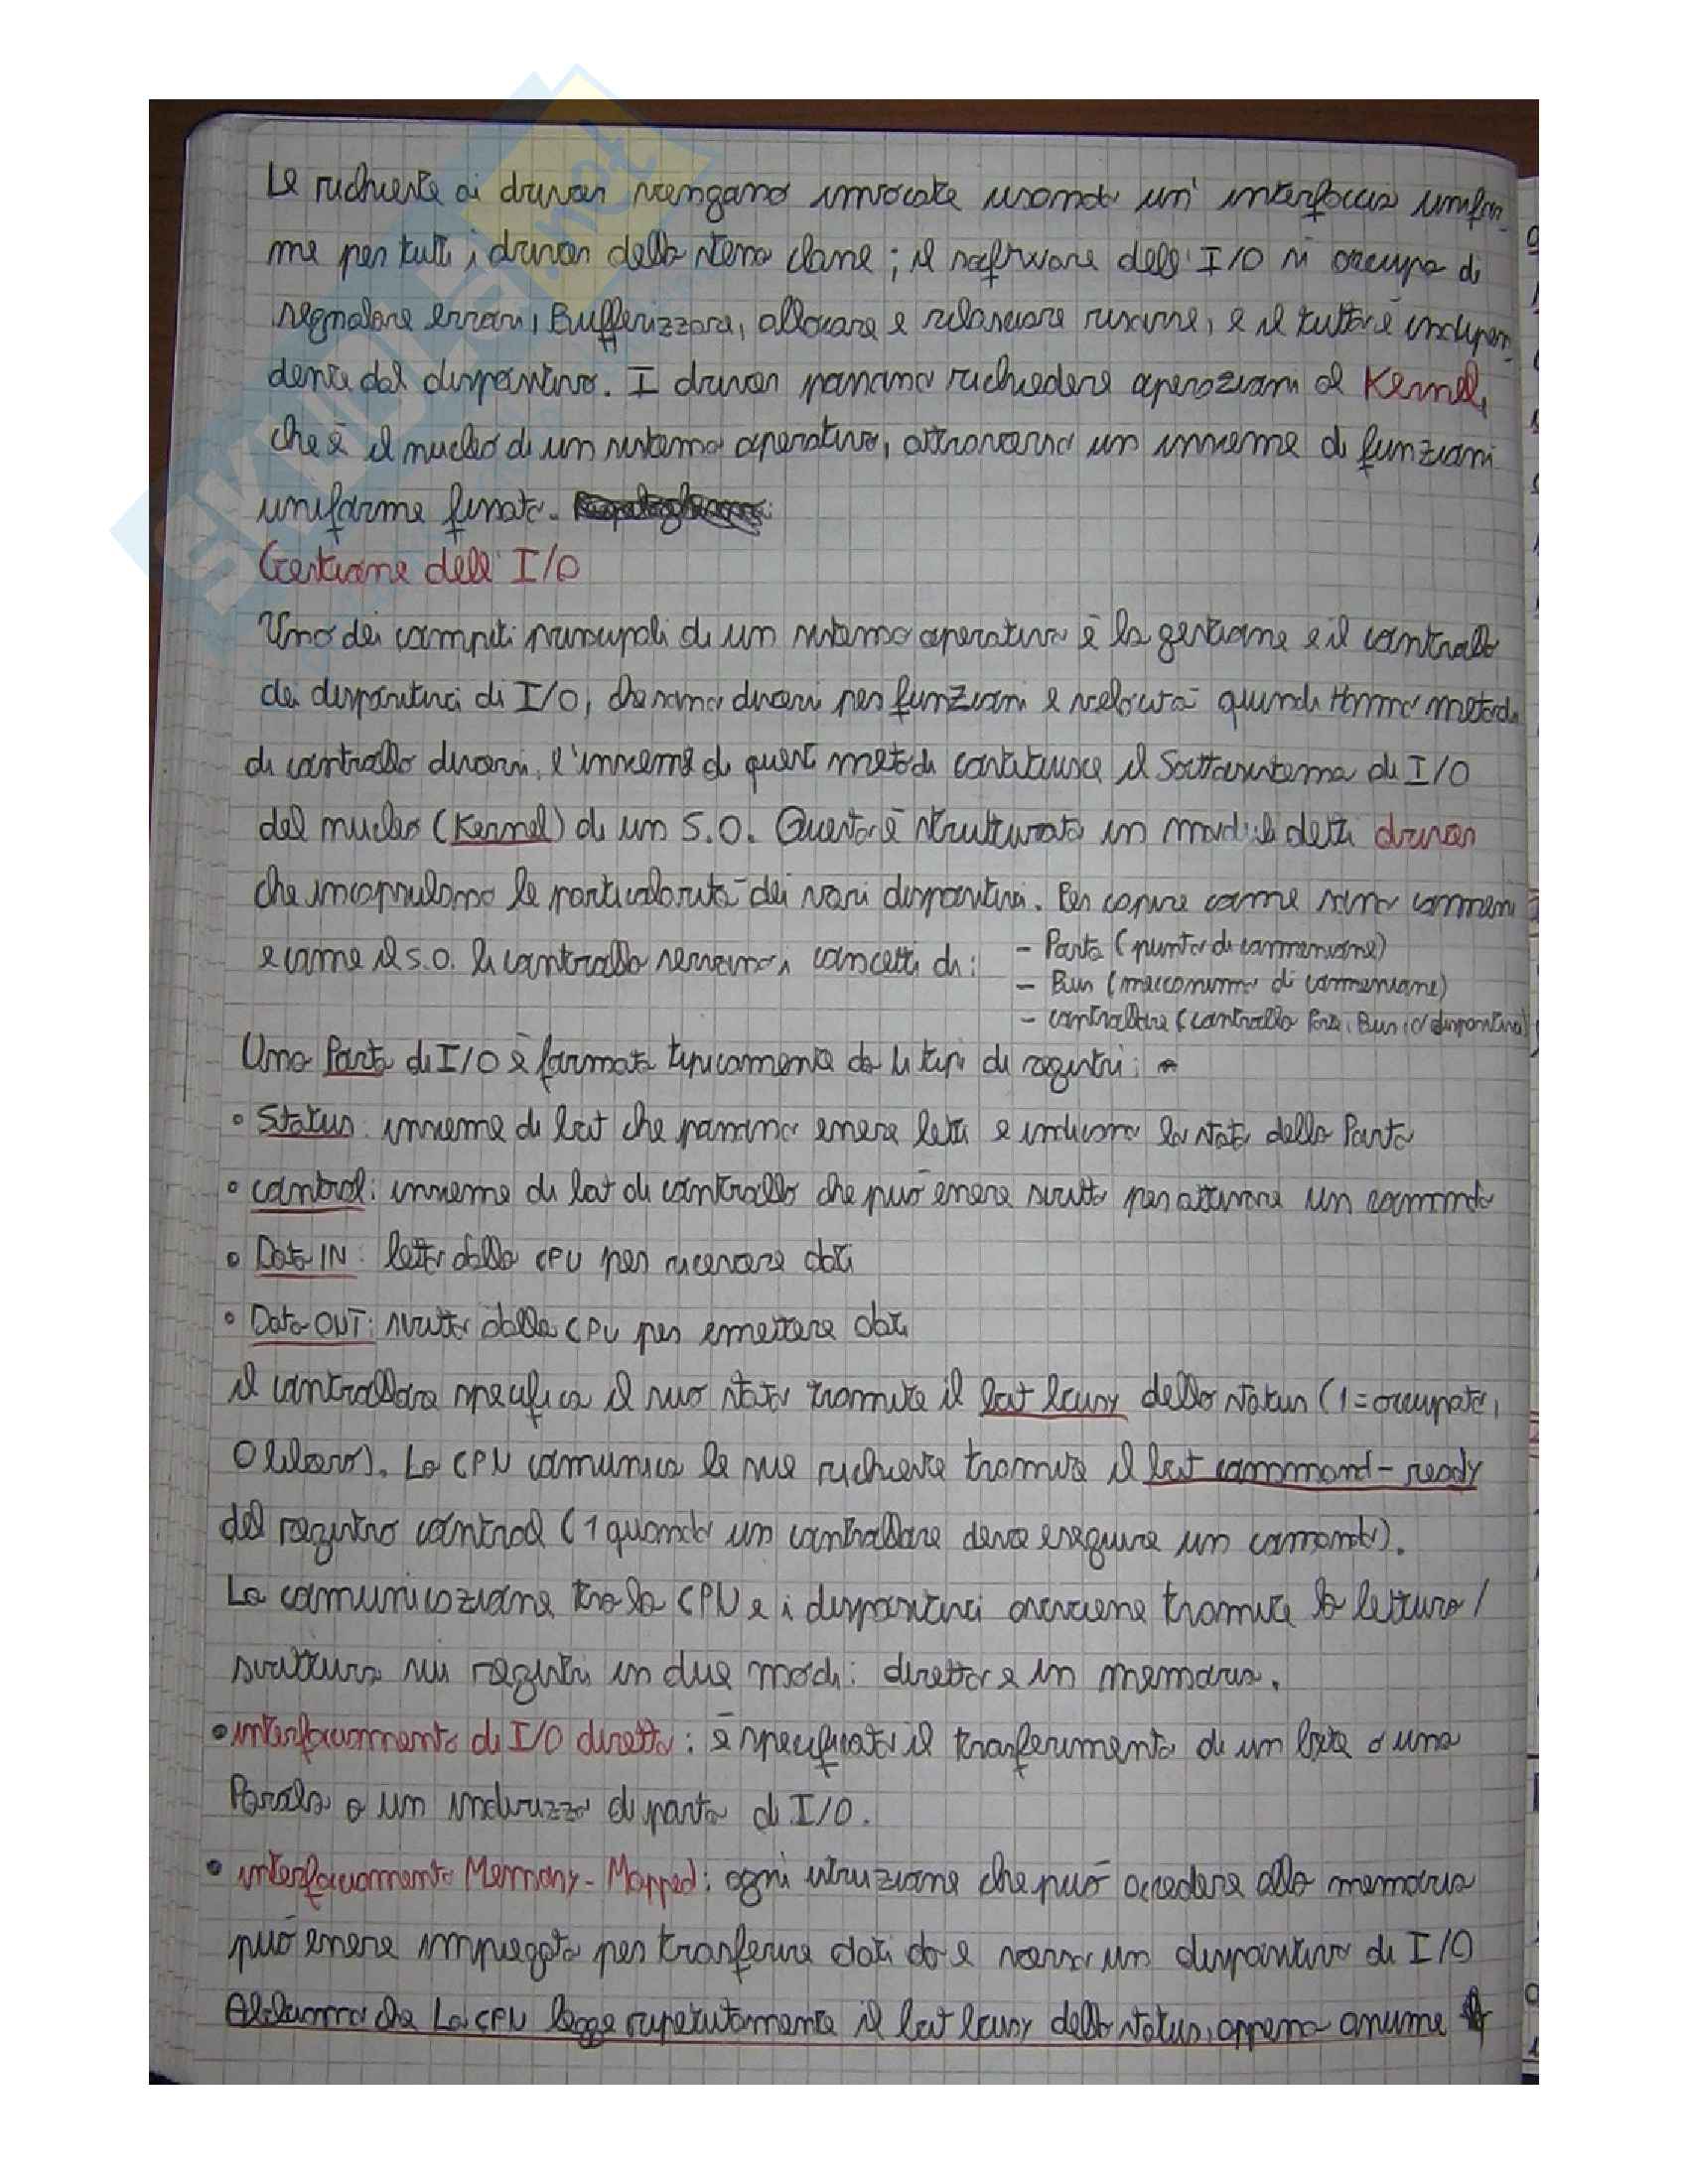 Le richieste ai driver vengano invocate usando un' interfaccia unifor-
me per tutti i driver della stessa classe; il software dell' I/O si occupa di
segnalare errori, Bufferizzare, allocare e rilasciare risorse, e il tutto è indipen-
dente dal dispositivo. I driver possono richiedere operazioni al Kernel,
che è il nucleo di un sistema operativo, attraverso un insieme di funzioni
uniforme fissato.
Gestione dell' I/O
Uno dei compiti principali di un sistema operativo è la gestione e il controllo
dei dispositivi di I/O, che sono diversi per funzioni e velocità quindi Hanno metodi
di controllo diversi, l'insieme di questi metodi costituisce il Sottosistema di I/O
del nucleo (Kernel) di un S.O. Questo è strutturato in moduli detti driver
che incapsulano le particolarità dei vari dispositivi. Per capire come sono connessi
e come il S.O. li controlla servono i concetti di:
- Porta (punto di connessione)
- Bus (meccanismo di connessione)
- controllore (controlla Porte, Bus, o dispositivi)
Una Porta di I/O è formata tipicamente da 4 tipi di registri:
• Status: insieme di bit che possono essere letti e indicano lo stato della Porta
• control: insieme di bit di controllo che può essere scritto per attivare un comando
• Data IN: letto dalla CPU per ricevere dati
• Data OUT: scritto dalla CPU per emettere dati
il controllore specifica il suo stato tramite il bit busy dello status (1=occupato,
0 libero). La CPU comunica le sue richieste tramite il bit command-ready
del registro control (1 quando un controllore deve eseguire un comando).
La comunicazione tra la CPU e i dispositivi avviene tramite la lettura/
scrittura sui registri in due modi: diretto e in memoria.
• interfacciamento di I/O diretto: è specificato il trasferimento di un byte o una
Parola a un indirizzo di porta di I/O.
• interfacciamento Memory-Mapped: ogni istruzione che può accedere alla memoria
può essere impiegata per trasferire dati da e verso un dispositivo di I/O
Abbiamo che La CPU legge ripetutamente il bit busy dello status, appena assume